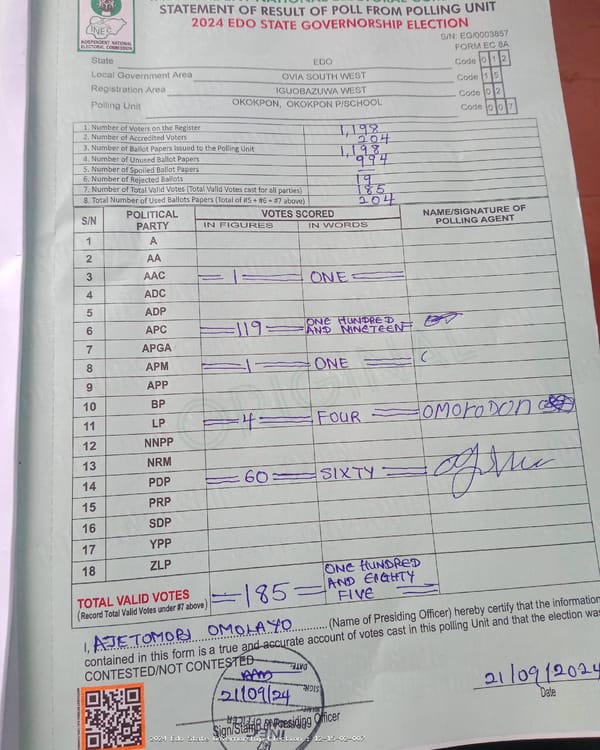 INDEPENDENT NATIONAL
ELECTORAL COMMISSION
STATEMENT OF RESULT OF POLL FROM POLLING UNIT
2024 EDO STATE GOVERNORSHIP ELECTION
S/N: EG/0003857
FORM EC 8A
State EDO Code 0 1 2
Local Government Area OVIA SOUTH WEST Code 1 5
Registration Area IGUOBAZUWA WEST Code 0 2
Polling Unit OKOKPON, OKOKPON P/SCHOOL Code 0 0 7
1. Number of Voters on the Register 1,198
2. Number of Accredited Voters 204
3. Number of Ballot Papers Issued to the Polling Unit 1,198
4. Number of Unused Ballot Papers 994
5. Number of Spoiled Ballot Papers —
6. Number of Rejected Ballots 19
7. Number of Total Valid Votes (Total Valid Votes cast for all parties) 185
8. Total Number of Used Ballots Papers (Total of #5 + #6 + #7 above) 204
S/N POLITICAL PARTY VOTES SCORED NAME/SIGNATURE OF POLLING AGENT
IN FIGURES IN WORDS
1 A
2 AA
3 AAC 1 ONE
4 ADC
5 ADP
6 APC 119 ONE HUNDRED AND NINETEEN
7 APGA
8 APM 1 ONE
9 APP
10 BP
11 LP 4 FOUR
12 NNPP
13 NRM
14 PDP 60 SIXTY
15 PRP
16 SDP
17 YPP
18 ZLP
TOTAL VALID VOTES =185= ONE HUNDRED AND EIGHTY FIVE
(Record Total Valid Votes under #7 above)
I, AJETOMOBI OMOLAYO (Name of Presiding Officer) hereby certify that the information
contained in this form is a true and accurate account of votes cast in this polling Unit and that the election was
CONTESTED/NOT CONTESTED
DATE
SIGN
21/09/24
21/09/2024
Date
Sign/Stamp of Presiding Officer
2024 Edo State Governorship Election : 12-15-02-007
ORIGINAL